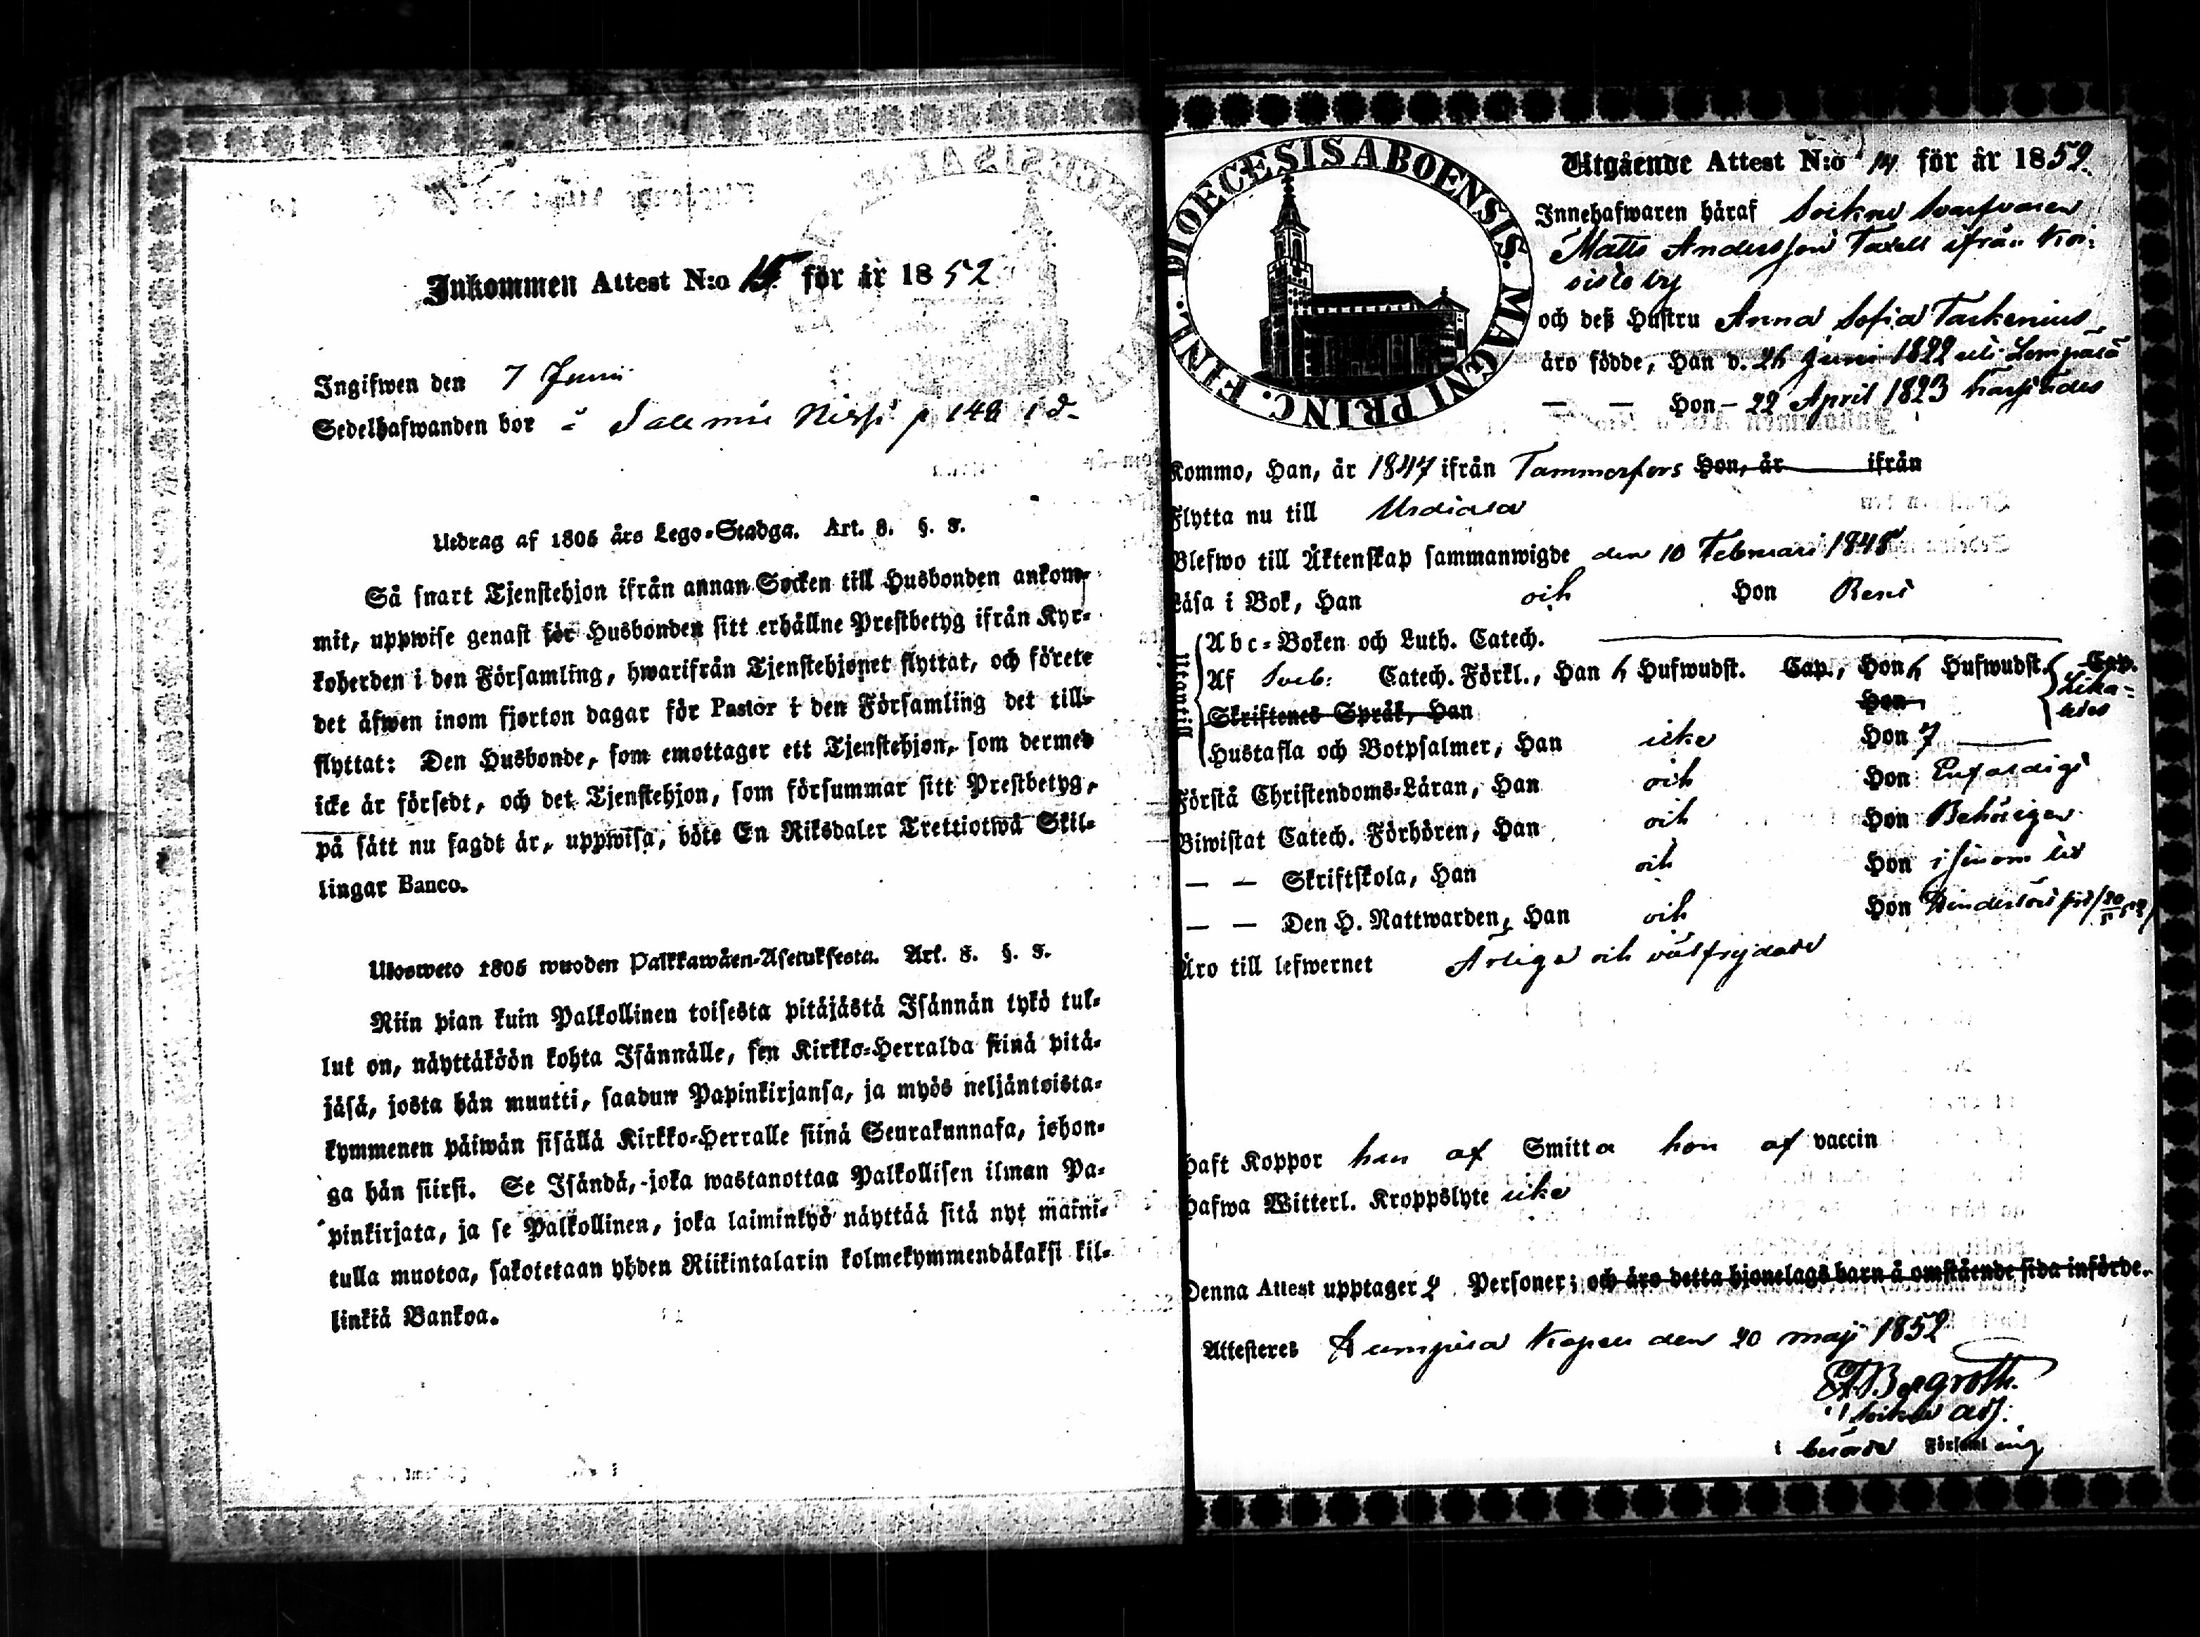 Inkommen Attest N:o 15 för år 1852
Ingifwen den 7 Junii
Sedelhafwanden bor i Salemi
Utdrag af 1805 års Lego-Stadga. Art. 8. §. 8.
Så snart Tjenstehjon ifrån annan Socken till Husbonden ankom-
mit, uppwise genast för Husbonden sitt erhållne Prestbetyg ifrån Kyr-
koherden i den Församling, hwarifrån Tjenstehjonet flyttat, och förete
det äfwen inom fjorton dagar för Pastor i den Församling det till-
flyttat: Den Husbonde, som emottager ett Tjenstehjon, som dermed
icke är försedt, och det Tjenstehjon, som försummar sitt Prestbetyg,
på sätt nu sagdt är, uppwisa, böte En Riksdaler Trettiotwå Skil-
lingar Banco.
Ulosweto 1805 wuoden Palkkawäen-Asetuksesta. Art. 8. §. 8.
Niin pian kuin Palkollinen toisesta pitäjästä Isännän tykö tul-
lut on, näyttäköön kohta Isännälle, sen Kirkko-Herralda siinä pitä-
jäsä, josta hän muutti, saadun Papinkirjansa, ja myös neljäntoista-
kymmenen päiwän sisällä Kirkko-Herralle siinä Seurakunnasa, johon-
ga hän siirsi. Se Isändä, joka wastanottaa Palkollisen ilman Pa-
pinkirjata, ja se Palkollinen, joka laiminlyö näyttää sitä nyt maini-
tulla muotoa, sakotetaan yhden Riikintalarin kolmekymmendäkaksi kil-
linkiä Bankoa.
DIOECESIS ABOENSIS. MAGNI PRINC. FINL.
Utgående Attest N:o 14 för år 1852.
Innehafwaren häraf Sockne Swarfvaren
Matts Andersson Taxell ifrån Koi-
sisto by
och deß Hustru Anna Sofia Tackenius
äro födde, Han d. 26 Junii 1822 uti Lempälä
— — Hon — 22 April 1823 harstädes
Kommo, Han, år 1847 ifrån Tammerfors Hon, år ifrån
Flytta nu till Urdiala
Blefwo till Äktenskap sammanwigde den 10 Februari 1848
Läsa i Bok, Han och Hon Rent
Utantill
Abc-Boken och Luth. Catech.
Af Sveb: Catech. Förkl., Han 5 Hufwudst. Cap., Hon 5 Hufwudst. Cap.
Lika-
ledes
Skriftenes Språk, Han Hon
Hustafla och Botpsalmer, Han icke Hon 7
Förstå Christendoms-Läran, Han och Hon Enfaldigt
Biwistat Catech. Förhören, Han och Hon Behörigen
— — Skriftskola, Han och Hon i sinom tid
— — Den H. Nattwarden, Han och Hon
Äro till lefwernet Ärliga och välfrejdade
Haft Koppor han af Smitta hon af vaccin
Hafwa Witterl. Kroppslyte icke
Denna Attest upptager 2 Personer; och äro detta hjonelags barn å omstående sida införde.
Attesteres Kapell den 20 maji 1852
Bergroth.
Sockne adj.
i berörde Församling